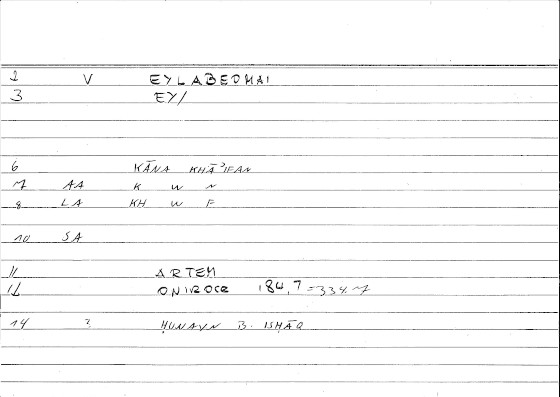 2 V EYLABEOMAI
3 EY/
6 KĀNA KHĀʾIFAN
7 AA K W N
8 LA KH W F
10 SA
11 ARTEM
12 ONIROCR 184,7 = 334.7
14 3 ḤUNAYN B. ISḤĀQ